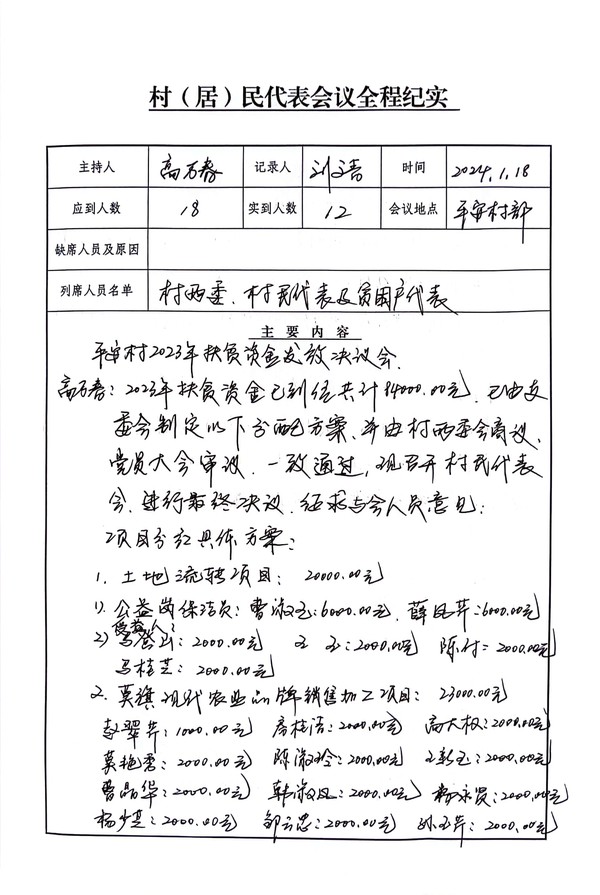 村（居）民代表会议全程纪实
主持人 高万春 记录人 刘洁 时间 2024.1.18
应到人数 18 实到人数 12 会议地点 平安村部
缺席人员及原因
列席人员名单 村两委、村民代表及贫困户代表
主要内容
平安村2023年扶贫资金发放决议会.
高万春：2023年扶贫资金已到位共计84000.00元，已由支
委会制定以下分配方案、并由村两委会商议、
党员大会审议、一致通过，现召开村民代表
会、进行最终决议、征求与会人员意见：
项目分红具体方案：
1. 土地流转项目： 20000.00元
1）公益岗保洁员：曹淑玉：6000.00元、薛凤芹：6000.00元
受益人：
2）马营山：2000.00元 王玉：2000.00元 陈付：2000.00元
马桂芝：2000.00元
2. 莫旗现代农业品牌销售加工项目： 23000.00元
翠芹：1000.00元 房桂洁：2000.00元 高大权：2000.00元
莫艳秀：2000.00元 陈淑玲：2000.00元 王彩玉：2000.00元
曹晶华：2000.00元 韩淑凤：2000.00元 杨永贤：2000.00元
杨少芝：2000.00元 邹云忠：2000.00元 孙玉芹：2000.00元